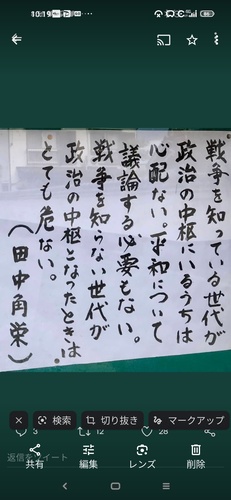 10:19
戦争を知っている世代が
政治の中枢にいるうちは
心配ない。平和について
議論する必要もない。
戦争を知らない世代が
政治の中枢となったときは
とても危ない。
(田中角栄)
検索
切り抜き
マークアップ
3
12
28
返信をツイート
共有
編集
レンズ
削除